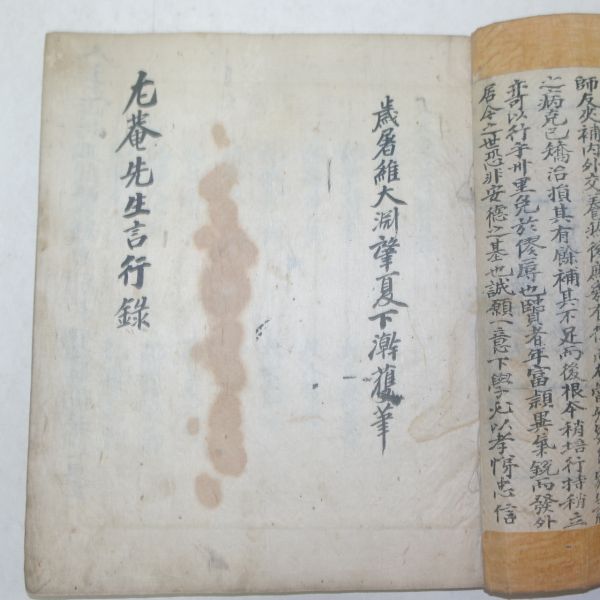 師友夾補內外交養
之病克己矯治損其有餘補其不足而後根本稍培行持稍立
亦可以行乎州里免於僇辱也賢者年富穎異氣銳而發外
居今之世恐非安德之基也誠願一意下學先以孝悌忠信
歲屠維大淵肇夏下澣䕶筆
尤菴先生言行錄